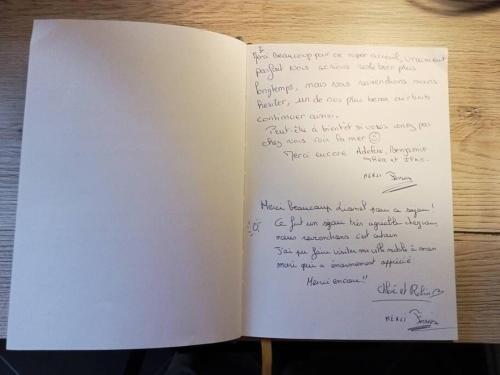 Merci beaucoup pour ce super accueil, vraiment
parfait nous serions resté bien plus
longtemps, mais nous reviendrons sans
hésiter, un de nos plus beaux
continuer ainsi.
Peut-être à bientôt si vous venez pas
chez nous voir la mer ☺
Merci encore Adeline, Benjamin
et
MERCI
Merci beaucoup Lionel pour ce séjour !
Ce fut un séjour très agréable chez vous,
nous reviendrons c'est certain
J'ai pu faire visiter ma ville natale à mon
mari qui a énormément apprécié
Merci encore !!
Chloé et Robin
MERCI